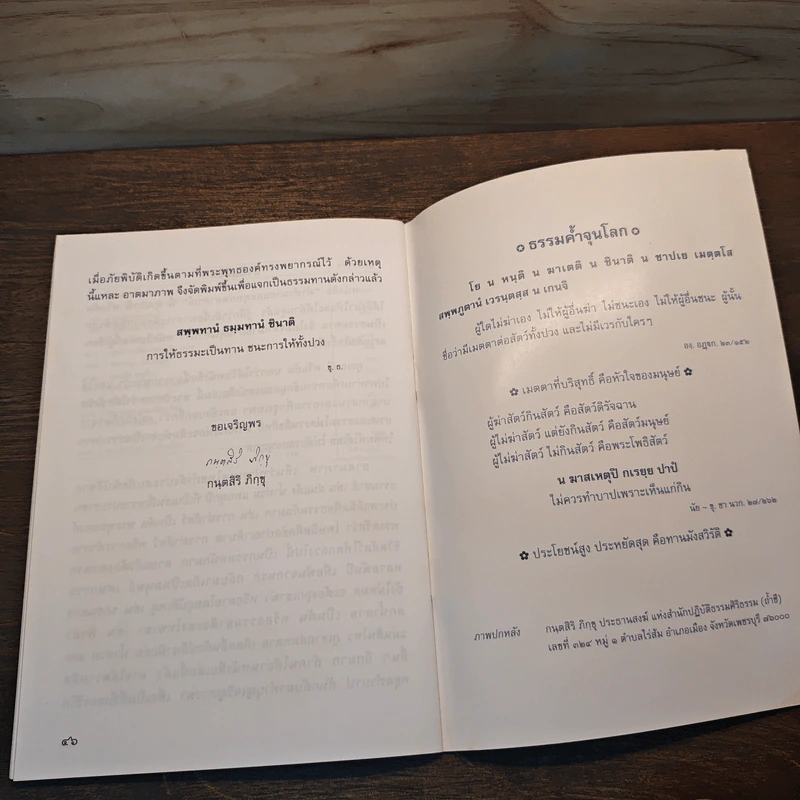 เมื่อภัยพิบัติเกิดขึ้นตามที่พระพุทธองค์ทรงพยากรณ์ไว้ ด้วยเหตุ
นี้แหละ อาตมาภาพ จึงจัดพิมพ์ขึ้นเพื่อแจกเป็นธรรมทานดังกล่าวแล้ว
สพฺพทานํ ธมฺมทานํ ชินาติ
การให้ธรรมะเป็นทาน ชนะการให้ทั้งปวง
ขุ. ธ.
ขอเจริญพร
กนฺตสิริ ภิกฺขุ
กนฺตสิริ ภิกฺขุ
๔๖
✪ ธรรมค้ำจุนโลก ✪
โย น หนฺติ น ฆาเตติ น ชินาติ น ชาปเย เมตฺตโส
สพฺพภูตานํ เวรนฺตสฺส น เกนจิ
ผู้ใดไม่ฆ่าเอง ไม่ให้ผู้อื่นฆ่า ไม่ชนะเอง ไม่ให้ผู้อื่นชนะ ผู้นั้น
ชื่อว่ามีเมตตาต่อสัตว์ทั้งปวง และไม่มีเวรกับใครๆ
องฺ. อฏฺฐก. ๒๓/๑๕๒
✿ เมตตาที่บริสุทธิ์ คือหัวใจของมนุษย์ ✿
ผู้ฆ่าสัตว์กินสัตว์ คือสัตว์ดิรัจฉาน
ผู้ไม่ฆ่าสัตว์ แต่ยังกินสัตว์ คือสัตว์มนุษย์
ผู้ไม่ฆ่าสัตว์ ไม่กินสัตว์ คือพระโพธิสัตว์
น ฆาสเหตุปิ กเรยฺย ปาปํ
ไม่ควรทำบาปเพราะเห็นแก่กิน
นัย - ขุ. ชา นวก. ๒๗/๒๖๒
✿ ประโยชน์สูง ประหยัดสุด คือทานมังสวิรัติ ✿
ภาพปกหลัง กนฺตสิริ ภิกฺขุ ประธานสงฆ์ แห่งสำนักปฏิบัติธรรมศิริธรรม (ถ้ำชี)
เลขที่ ๓๒๔ หมู่ ๑ ตำบลไร่ส้ม อำเภอเมือง จังหวัดเพชรบุรี ๗๖๐๐๐